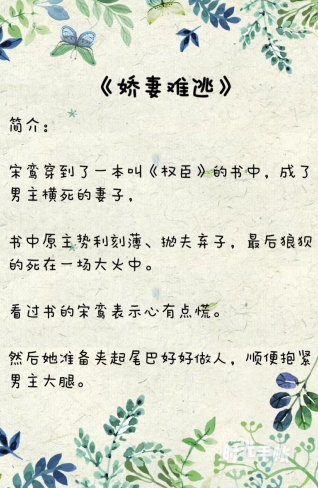 《娇妻难逃》
简介：
宋鸾穿到了一本叫《权臣》的书中，成了
男主横死的妻子，
书中原主势利刻薄、抛夫弃子，最后狼狈
的死在一场大火中。
看过书的宋鸾表示心有点慌。
然后她准备夹起尾巴好好做人，顺便抱紧
男主大腿。